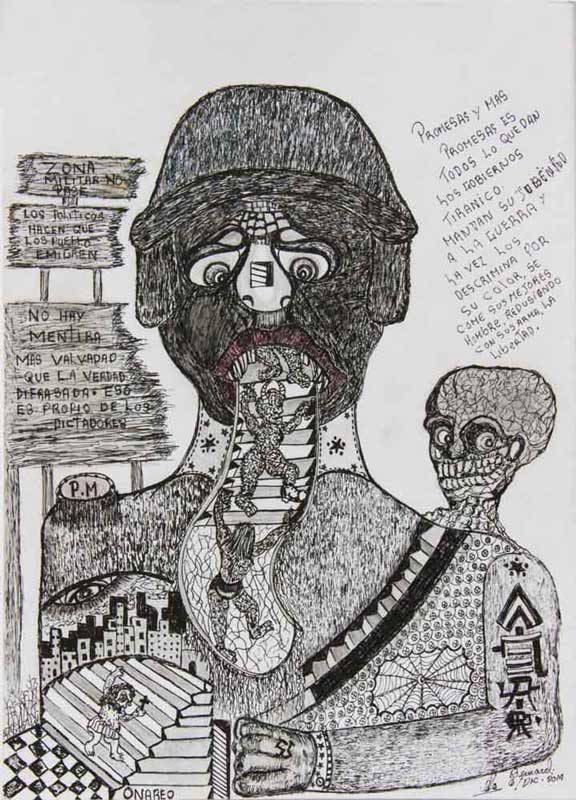 ZONA
MILITAR NO
PASE
LOS POLITICOS
HACEN QUE
LOS PUEBLO
EMIGREN
NO HAY
MENTIRA
MAS VALVADAD
QUE LA VERDAD
DIFRASADA. ESO
ES PROPIO DE LOS
DICTADORES
PROMESAS Y MAS
PROMESAS ES
TODOS LO QUE DAN
LOS GOBIERNOS
TIRANICO.
MANTAN SU
A LA GUERRA Y
LA VEZ LOS
DESCRIMINA POR
SU COLOR, SE
COME SUS MEJORES
HOMBRE REPUSIENDO
CON SUS ARMA, LA
LIBERTAD.
P.M
ONAREO
DIC. 2014